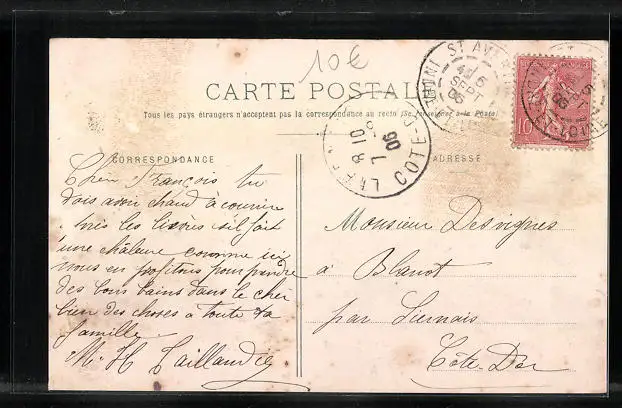 10€
CARTE POSTALE
Tous les pays étrangers n'acceptent pas la correspondance au recto (Se renseigner à la Poste)
CORRESPONDANCE
ADRESSE
ST AV
6
SEPT
06
INDRE-ET-LOIRE
8 10
7
06
COTE-
10
Cher François tu
dois avoir chaud à courir
après les lièvres s'il fait
une chaleur comme ici
nous en profitons pour prendre
des bons bains dans le cher
bien des choses à toute ta
famille
M. H Taillandier
Monsieur Desvignes
à Blanot
par Liernais
Côte-D'or